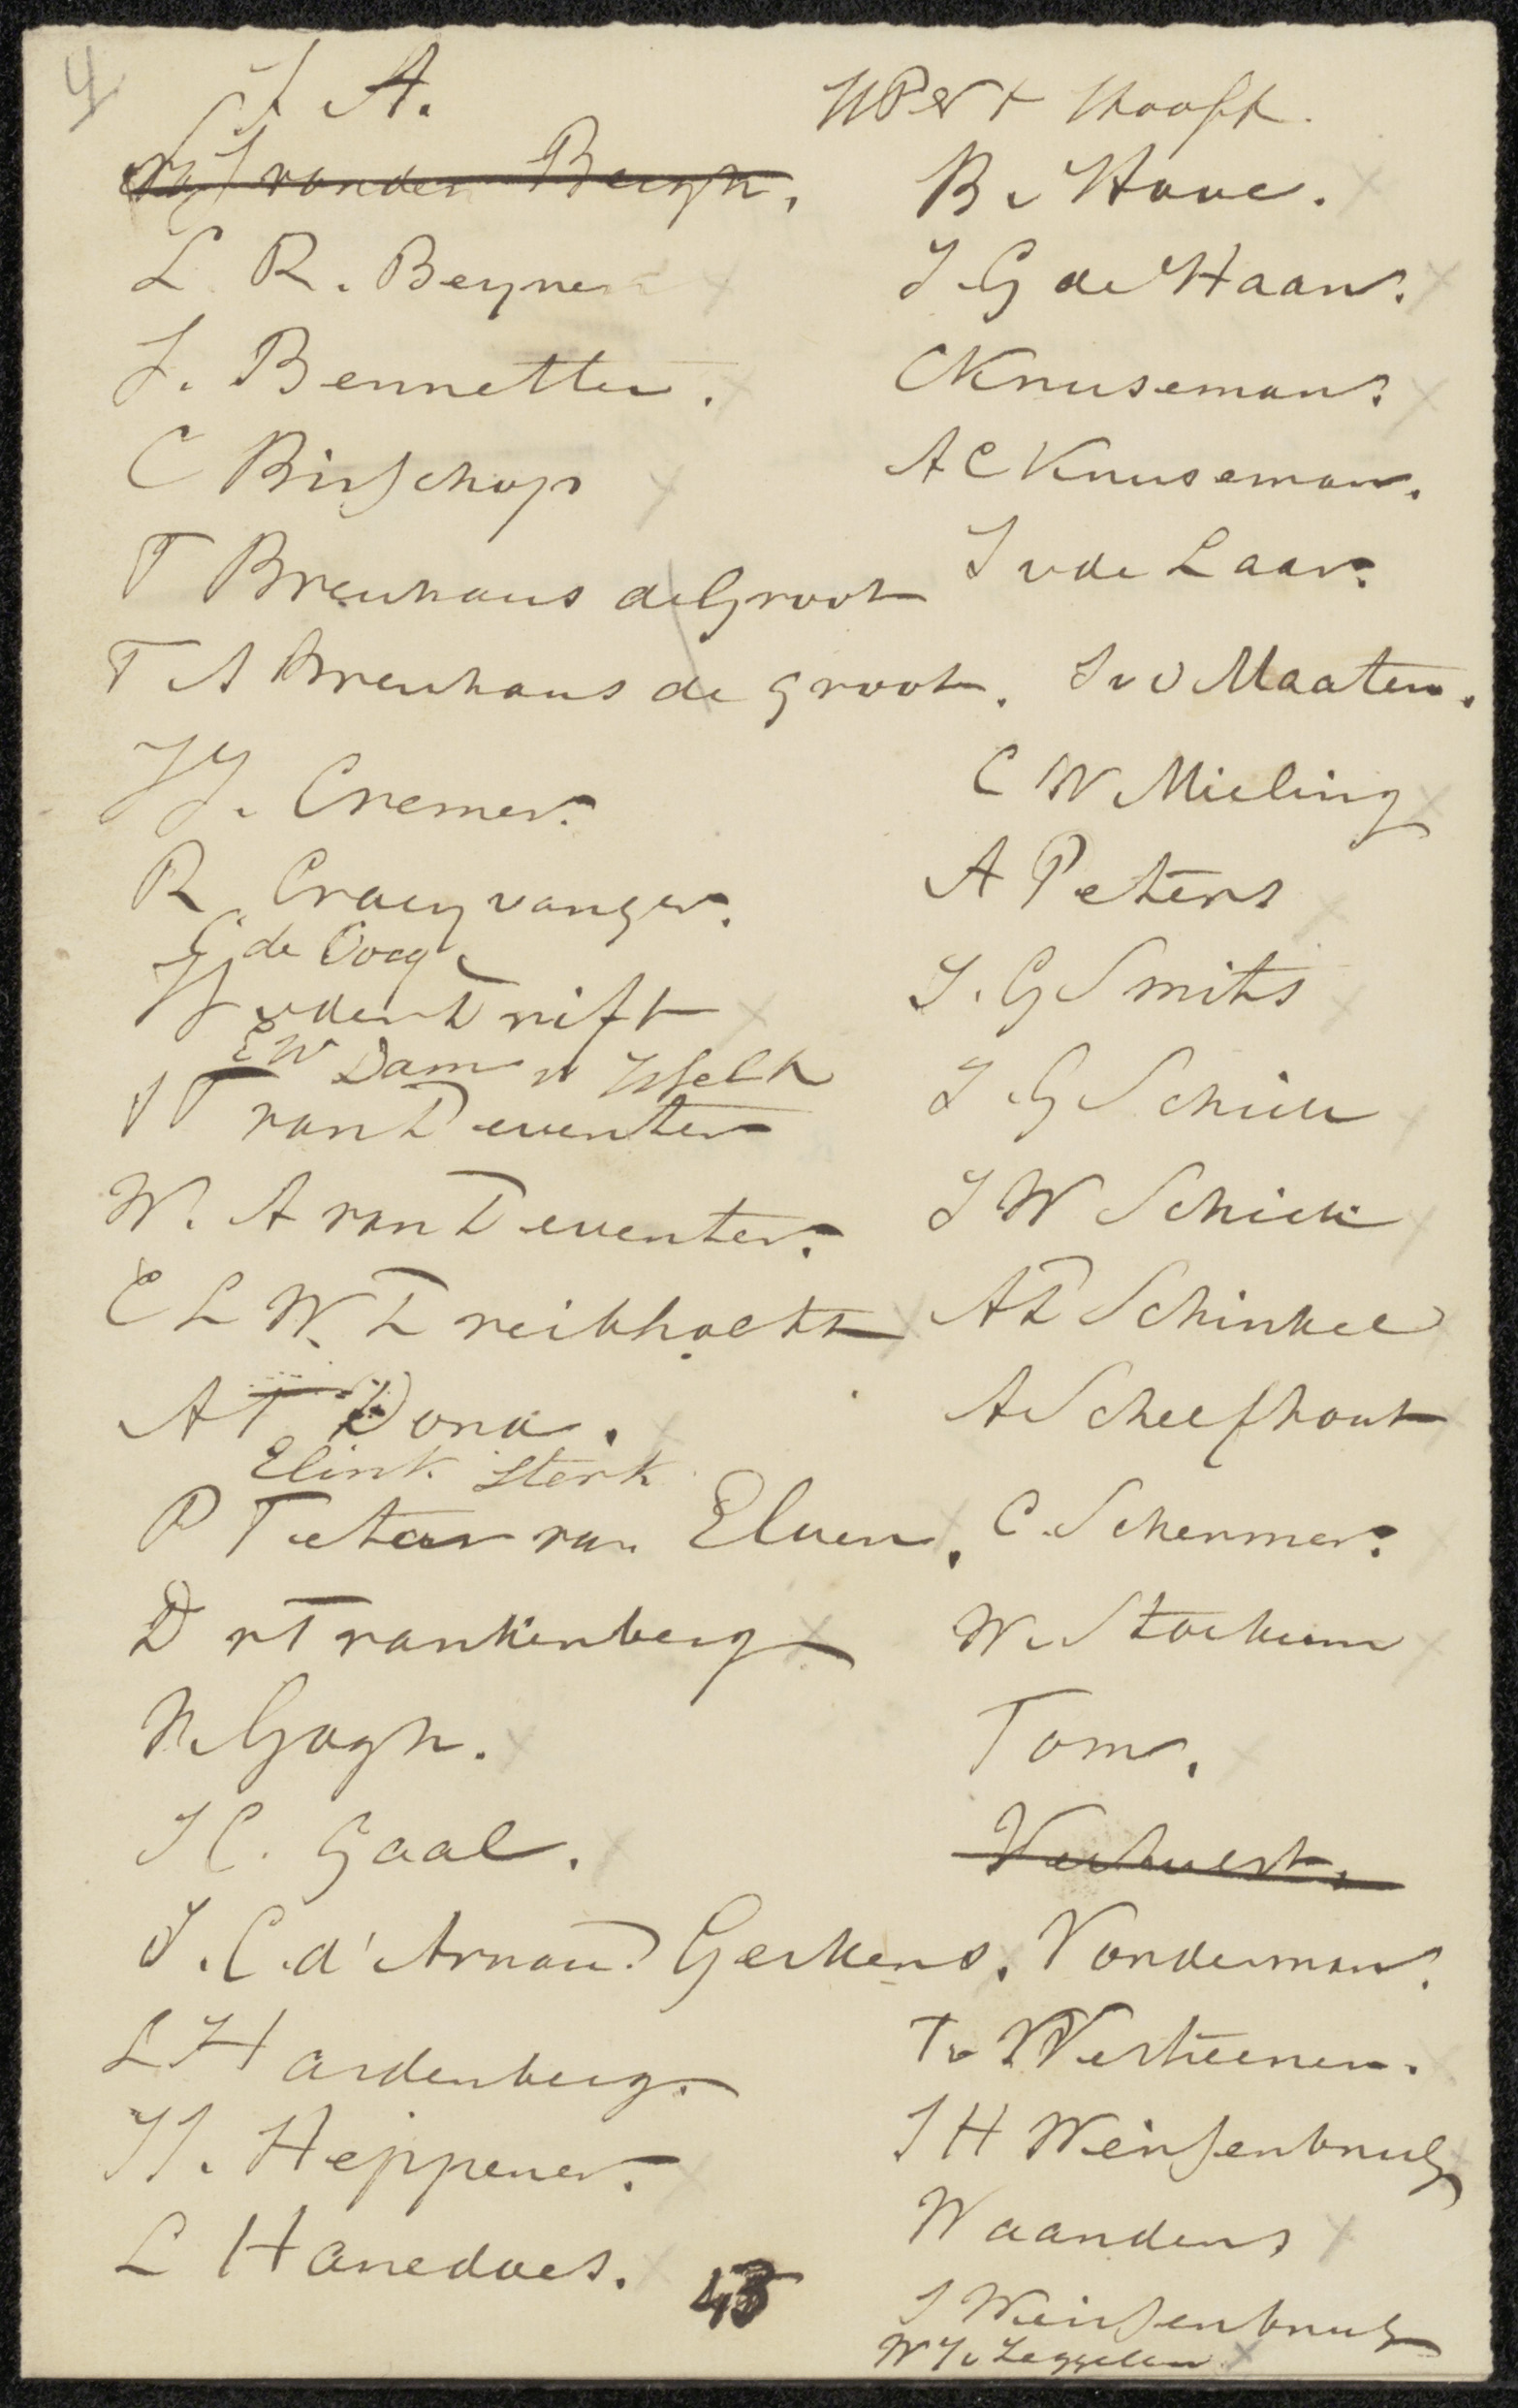 4
J A.
van den Bergh.
L R. Beynen
J. Bennetter.
C Bisschop
T Breuhaus de Groot
F A Breuhaus de Groot.
JJ. Cremer.
R Craeyvanger.
C de Cocq
W vder Drift
EW Dam v Isselt
JF van Deventer
W. A van Deventer.
C L W. Dreibholtz
AF Dona.
Elink Sterk
P Tetar van Elven.
D v Frankenberg
v. Gogh.
J C. Gaal.
J. C. d'Arnaud Gerkens.
L Hardenberg.
JJ. Heppener.
L Hanedoes.
43
't Hooft.
B v Hove.
J. G de Haan.
C Kruseman.
A C Kruseman.
J vde Laar.
J v d Maaten.
C W Mieling
A Peters
J. G Smits
J. G Schiek
J W Schiek
AD Schinkel
A Schelfhout
C. Schermer.
W. Stockum
Tom.
Verhulst.
Vonderman.
Tv W Verheenen.
J H Weissenbruch
Waanders
J Weissenbruch
W J v Zeggelen